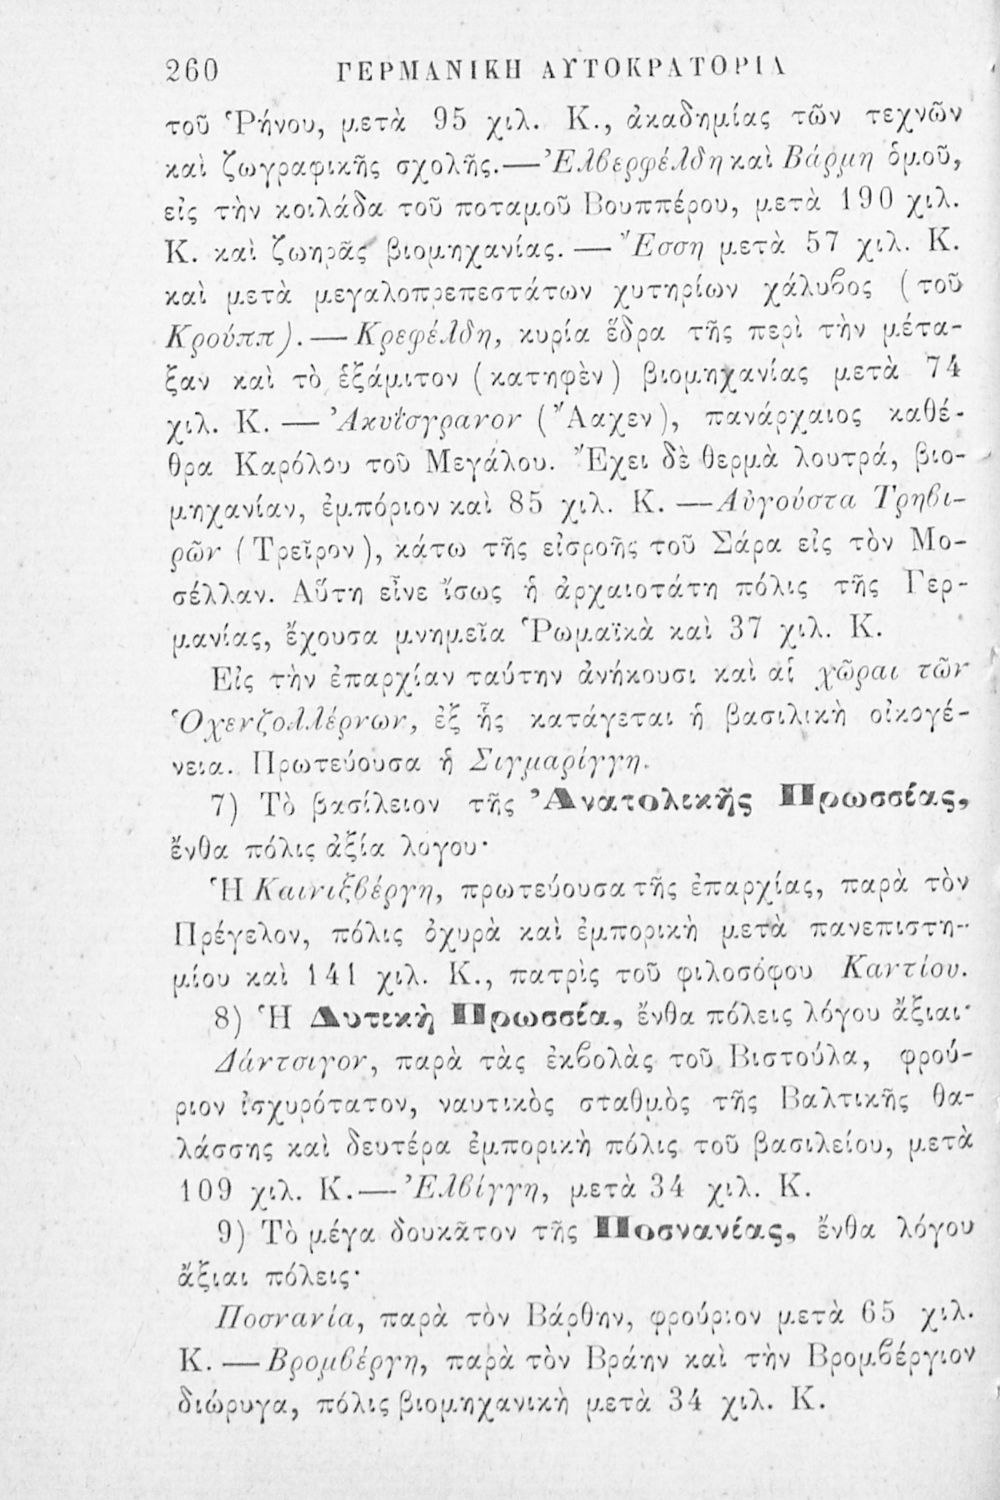 260 ΓΕΡΜΑΝΙΚΗ ΑΥΤΟΚΡΑΤΟΡΙΑ
τοῦ Ῥήνου, μετὰ 95 χιλ. Κ., ἀκαδημίας τῶν τεχνῶν
καὶ ζωγραφικῆς σχολῆς.—Ἐλβερφέλδη καὶ Βάρμη ὁμοῦ,
εἰς τὴν κοιλάδα τοῦ ποταμοῦ Βουππέρου, μετὰ 190 χιλ.
Κ. καὶ ζωηρᾶς βιομηχανίας. — Ἔσση μετὰ 57 χιλ. Κ.
καὶ μετὰ μεγαλοπρεπεστάτων χυτηρίων χάλυβος (τοῦ
Κρούππ).— Κρεφέλδη, κυρία ἕδρα τῆς περὶ τὴν μέτα-
ξαν καὶ τὸ ἑξάμιτον (κατηφὲν) βιομηχανίας μετὰ 74
χιλ. Κ. — Ἀκυΐσγρανον (Ἄαχεν), πανάρχαιος καθέ-
θρα Καρόλου τοῦ Μεγάλου. Ἔχει δὲ θερμὰ λουτρά, βιο-
μηχανίαν, ἐμπόριον καὶ 85 χιλ. Κ. —Αὐγούστα Τρηβι-
ρῶν (Τρεῖρον), κάτω τῆς εἰσροῆς τοῦ Σάρα εἰς τὸν Μο-
σέλλαν. Αὕτη εἶνε ἴσως ἡ ἀρχαιοτάτη πόλις τῆς Γερ-
μανίας, ἔχουσα μνημεῖα Ῥωμαϊκὰ καὶ 37 χιλ. Κ.
Εἰς τὴν ἐπαρχίαν ταύτην ἀνήκουσι καὶ αἱ χῶραι τῶν
Ὁχενζολλέρνων, ἐξ ἧς κατάγεται ἡ βασιλικὴ οἰκογέ-
νεια. Πρωτεύουσα ἡ Σιγμαρίγγη.
7) Τὸ βασίλειον τῆς Ἀνατολικῆς Πρωσσίας,
ἔνθα πόλις ἀξία λογου·
Ἡ Καινιξβέργη, πρωτεύουσα τῆς ἐπαρχίας, παρὰ τὸν
Πρέγελον, πόλις ὀχυρὰ καὶ ἐμπορικὴ μετὰ πανεπιστη-
μίου καὶ 141 χιλ. Κ., πατρὶς τοῦ φιλοσόφου Καντίου.
8) Ἡ Δυτικὴ Πρωσσία, ἔνθα πόλεις λόγου ἄξιαι·
Δάντσιγον, παρὰ τὰς ἐκβολὰς τοῦ Βιστούλα, φρού-
ριον ἰσχυρότατον, ναυτικὸς σταθμὸς τῆς Βαλτικῆς θα-
λάσσης καὶ δευτέρα ἐμπορικὴ πόλις τοῦ βασιλείου, μετὰ
109 χιλ. Κ.— Ἐλβίγγη, μετὰ 34 χιλ. Κ.
9) Τὸ μέγα δουκᾶτον τῆς Ποσνανίας, ἔνθα λόγου
ἄξιαι πόλεις·
Ποσνανία, παρὰ τὸν Βάρθην, φρούριον μετὰ 65 χιλ.
Κ. — Βρομβέργη, παρὰ τὸν Βράην καὶ τὴν Βρομβέργιον
διώρυγα, πόλις βιομηχανικὴ μετὰ 34 χιλ. Κ.